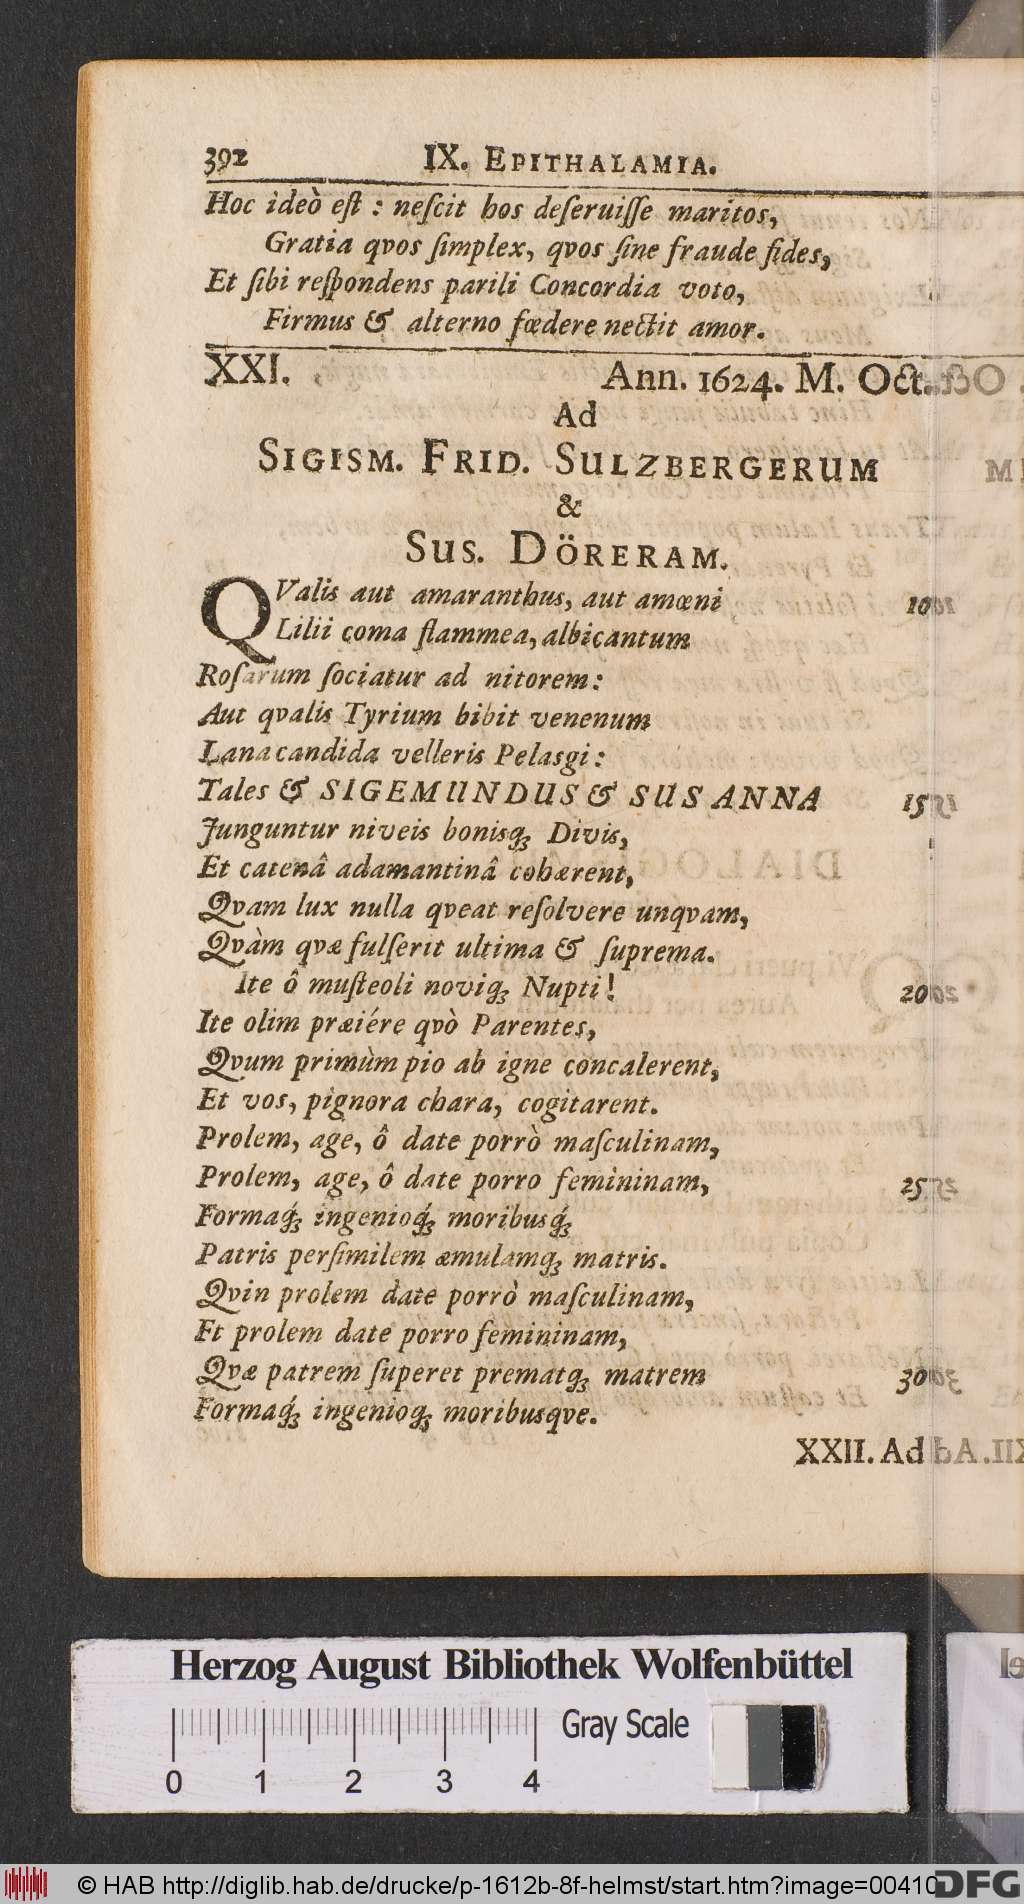 392 IX. EPITHALAMIA.
Hoc ideò eſt : neſcit hos deſeruiſſe maritos,
Gratia qvos ſimplex, qvos ſine fraude fides,
Et ſibi reſpondens parili Concordia voto,
Firmus & alterno fœdere nectit amor.
XXI. Ann. 1624. M. Oct.
Ad
SIGISM. FRID. SULZBERGERUM
&
SUS. DÖRERAM.
QValis aut amaranthus, aut amœni 10
Lilii coma flammea, albicantum
Roſarum ſociatur ad nitorem:
Aut qvalis Tyrium bibit venenum
Lana candida velleris Pelasgi:
Tales & SIGEMUNDUS & SUSANNA 15
Junguntur niveis bonisq́; Divis,
Et catenâ adamantinâ cohærent,
Qvam lux nulla qveat reſolvere unqvam,
Qvàm qvæ fulſerit ultima & ſuprema.
Ite ô muſteoli noviq; Nupti! 20
Ite olim præiére qvò Parentes,
Qvum primùm pio ab igne concalerent,
Et vos, pignora chara, cogitarent.
Prolem, age, ô date porrò maſculinam,
Prolem, age, ô date porro femininam, 25
Formaq́; ingenioq́; moribusq́;
Patris perſimilem æmulamq; matris.
Qvin prolem date porrò maſculinam,
Et prolem date porro femininam,
Qvæ patrem ſuperet prematq; matrem 30
Formaq́; ingenioq; moribusqve.
XXII. Ad
Herzog August Bibliothek Wolfenbüttel
Gray Scale
0 1 2 3 4
© HAB http://diglib.hab.de/drucke/p-1612b-8f-helmst/start.htm?image=00410
DFG